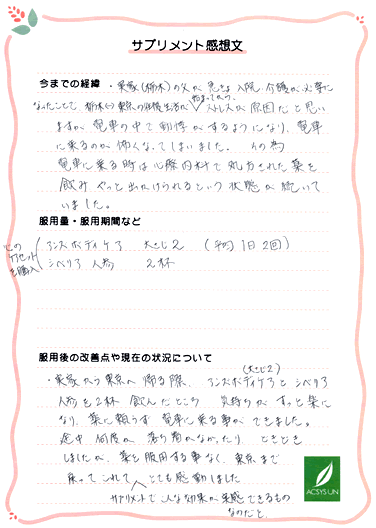 サプリメント感想文
今までの経緯 ・実家(栃木)の父が急きょ入院、介護が必要に
なったことで、栃木⇔東京の往復生活が始まってから、ストレスが原因だと思い
ますが、電車の中で動悸がするようになり、電車
に乗るのが怖くなってしまいました。その為
電車に乗る時は心療内科で処方された薬を
飲み やっと出かけられるという状態が続いて
いました。
服用量・服用期間など
心の
ケアセット
を購入
アンスボディケア 大さじ2 (平均1日2回)
シベリア人参 2杯
服用後の改善点や現在の状況について
・実家から東京へ帰る際、アンスボディケア(大さじ2)とシベリア
人参を2杯飲んだところ 気持ちがすっと楽に
なり、薬に頼らず電車に乗る事ができました。
途中 何度か落ち着かなかったり、どきどき
しましたが、薬を服用する事なく、東京まで
乗ってこれて とても感動しました
サプリメントでこんな効果が実感できるもの
なのだと。
ACSYSUN